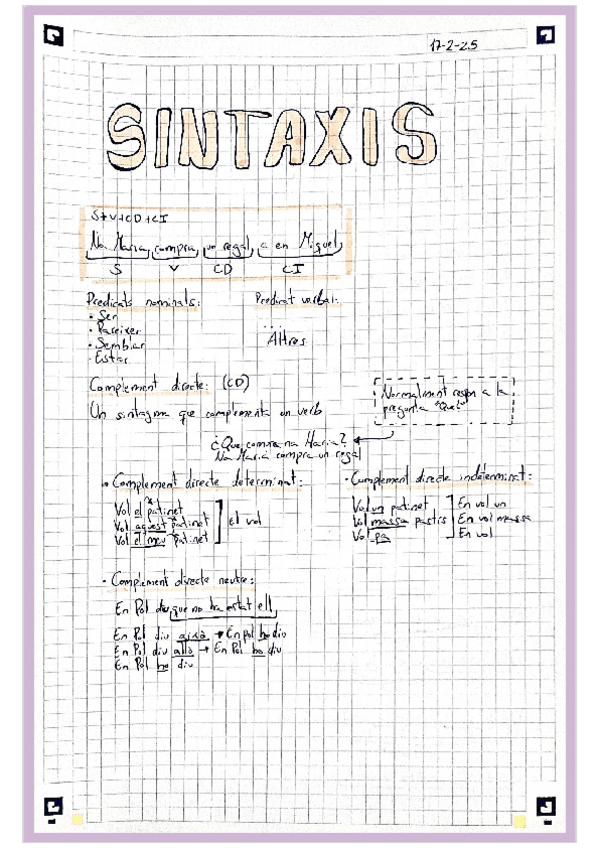 17-2-25
SINTAXIS
S+V+CD+CI
Na Maria compra un regal a en Miquel
S V CD CI
Predicats nominals:
· Ser
· Pareixer
· Semblar
· Estar
Predicat verbal:
...
Altres
Complement directe: (CD)
Un sintagma que complementa un verb
Normalment respon a la
pregunta "Què?"
¿Que compra na Maria?
Na Maria compra un regal
· Complement directe determinat:
Vol el patinet
Vol aquest patinet
Vol el meu patinet
el vol
· Complement directe indeterminat:
Vol un patinet
Vol massa pastis
Vol pa
En vol un
En vol massa
En vol
· Complement directe neutre:
En Pol diu que no ha estat ell
En Pol diu això → En pol ho diu
En Pol diu allò → En Pol ho diu
En Pol ho diu